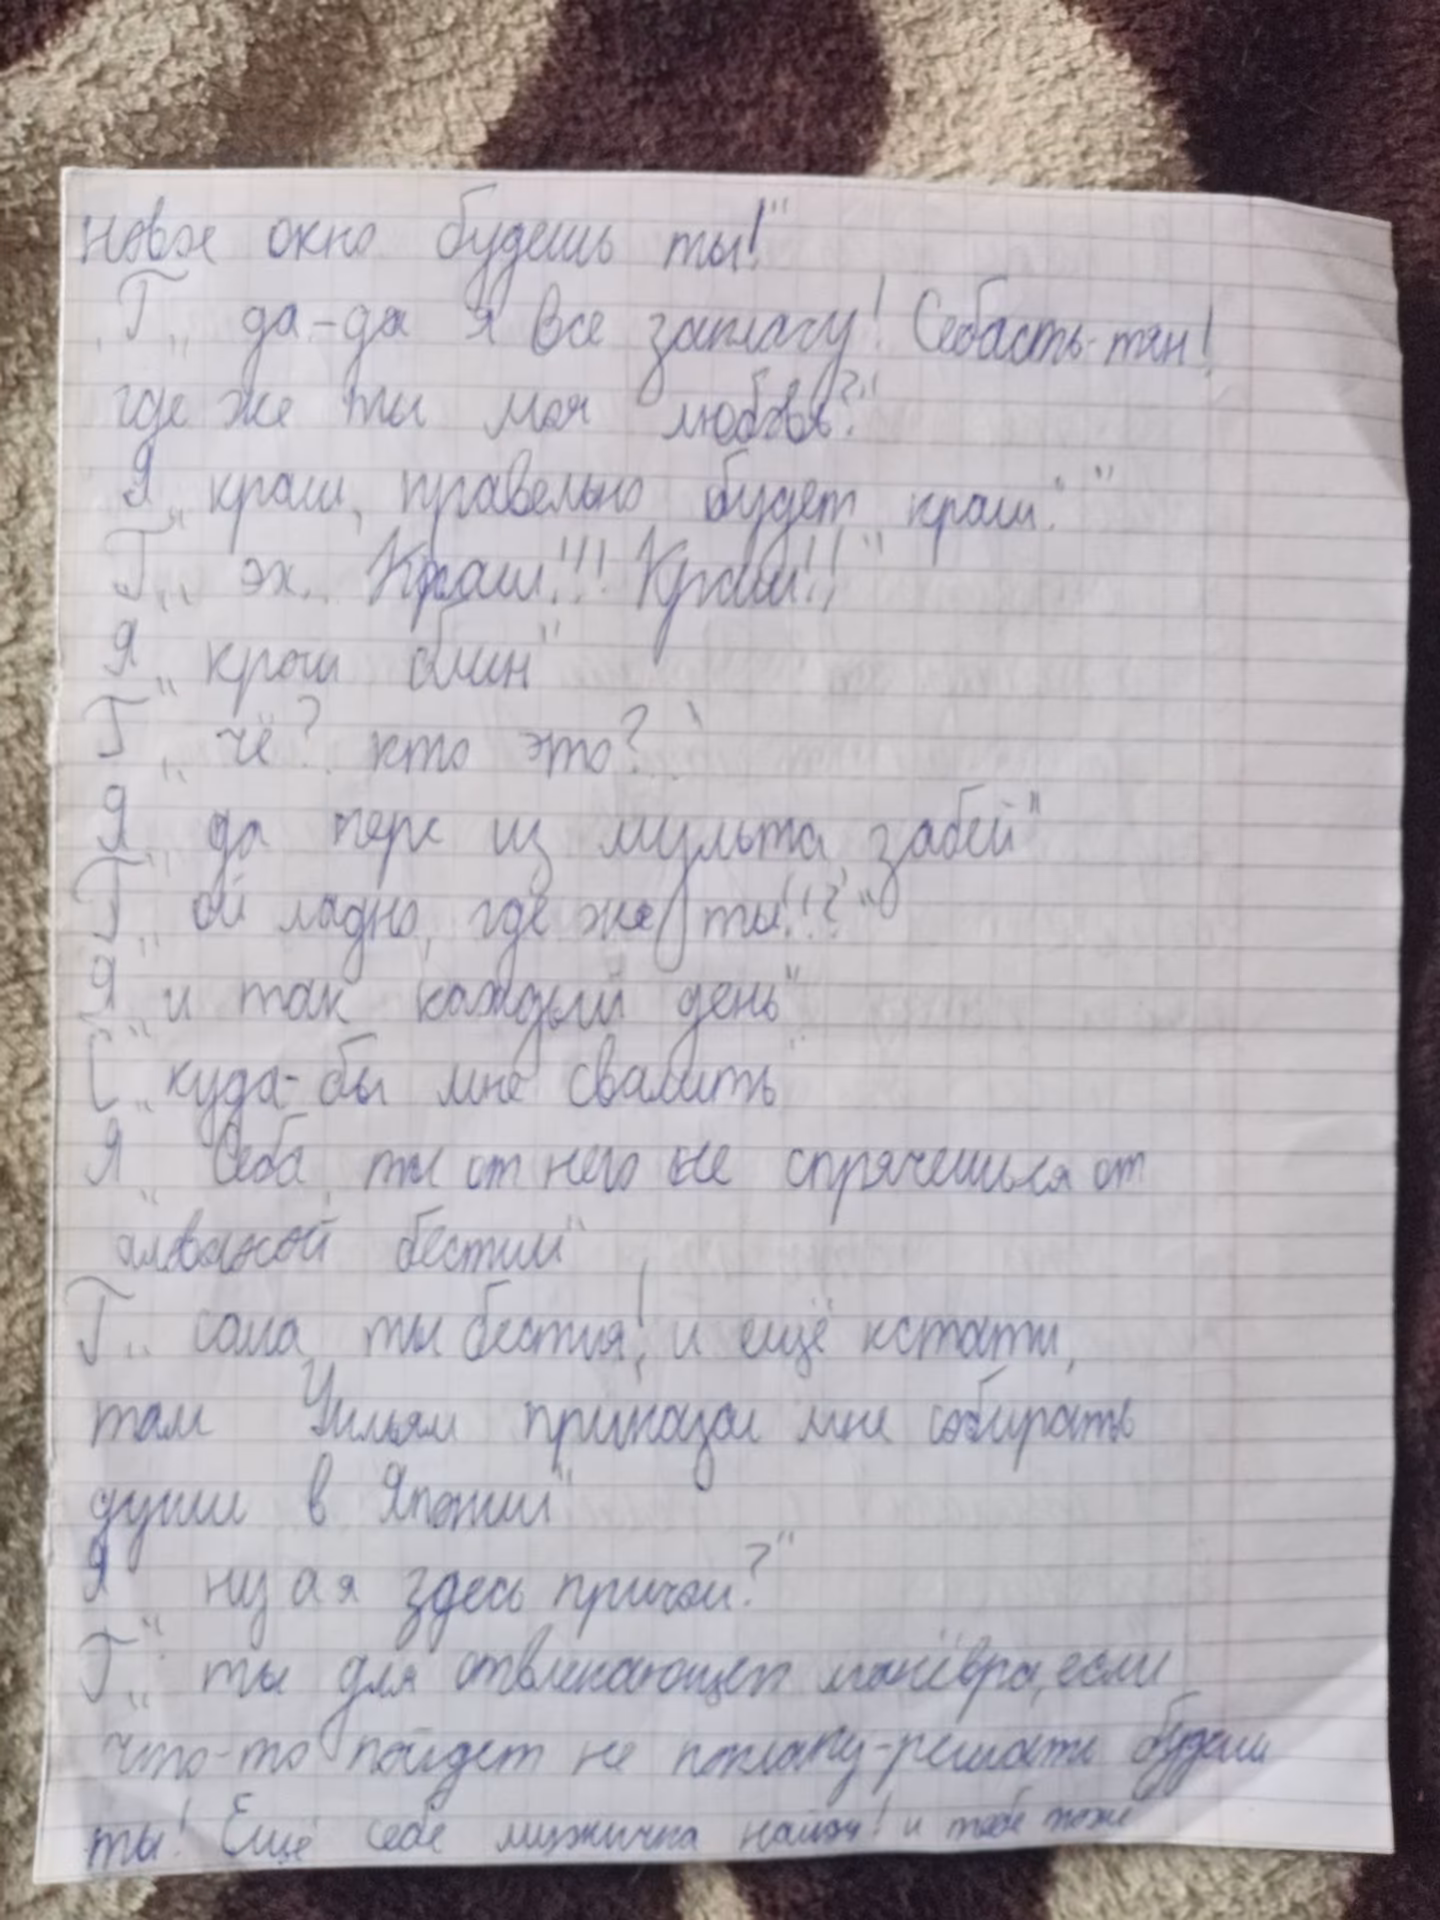 новое окно будешь ты!"
Г„ да-да я все заплачу! Себасть-тян!
где же ты моя любовь?"
Я„ краш, правельно будет краш."
Г„ эх.. Краш!!! Краш!!"
Я„ крош блин"
Г„ чё? кто это?"
Я„ да перс из мульта, забей"
Г„ ой ладно, где же ты!!?"
Я„ и так каждый день"
С„ куда-бы мне свалить"
Я„ Себа, ты от него не спрячешься от
алважной бестии"
Г„ сама ты бестия! и ещё кстати,
там Уильям приказал мне собирать
души в Японии"
Я„ ну а я здесь причом?"
Г„ ты для отвлекающего манёвра, если
что-то пойдет не поплану-решать будеш
ты! Ещё себе мужичка найдё! и тебе тоже